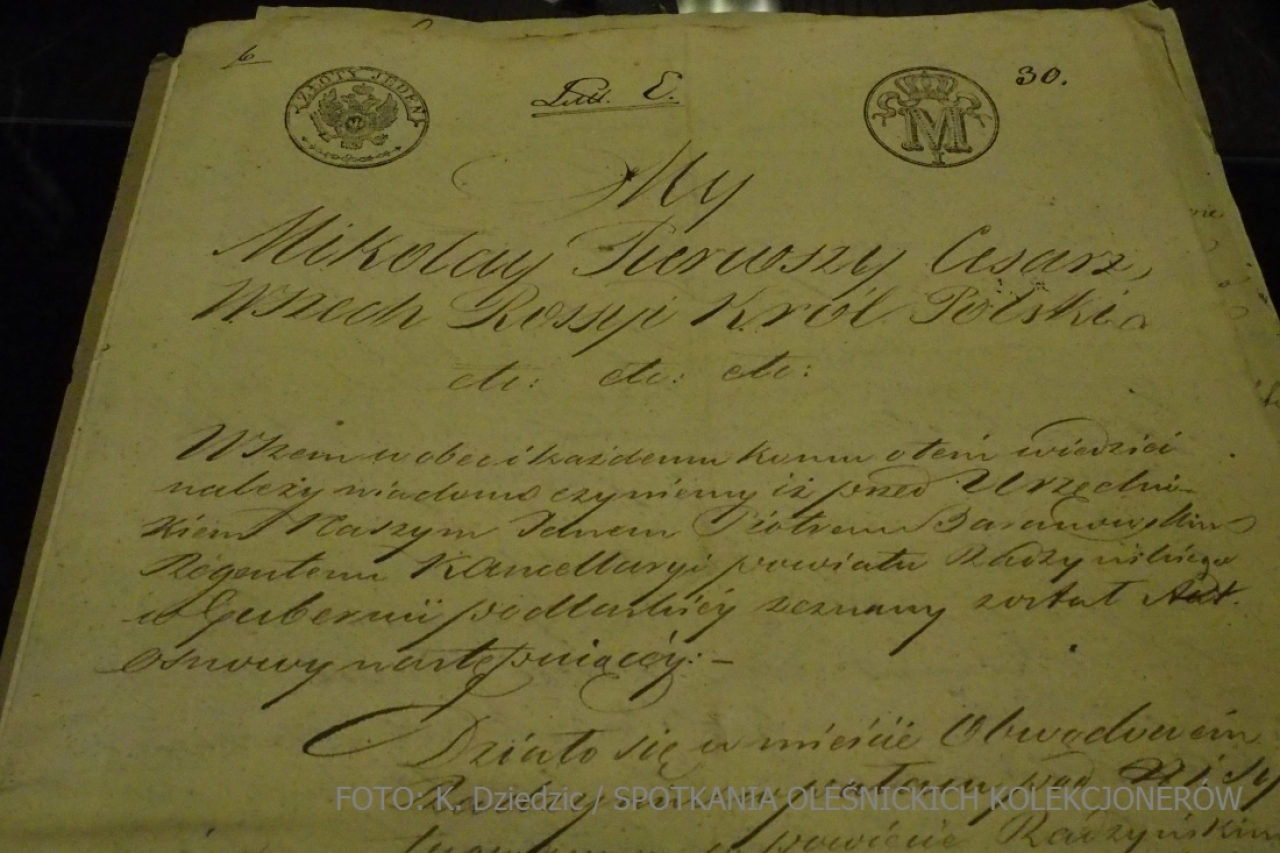 6
ZŁOTY JEDEN
Litt. E.
M
I
30.
My
Mikołay Pierwszy Cesarz,
Wszech Rossyi Król Polski
etc: etc: etc:
Wszem w obec i każdemu komu o tém wiedzieć
należy wiadomo czyniemy iż przed Urzędni-
kiem Naszym Janem Piotrem Baranowskim
Regentem Kancellaryi powiatu Radzyńskiego
w Gubernii podlaskiéy zeznany został Akt.
osnowy następuiącéy:-
Działo się w mieście Obwodowém
FOTO: K. Dziedzic / SPOTKANIA OLEŚNICKICH KOLEKCJONERÓW
powiecie Radzyńskim